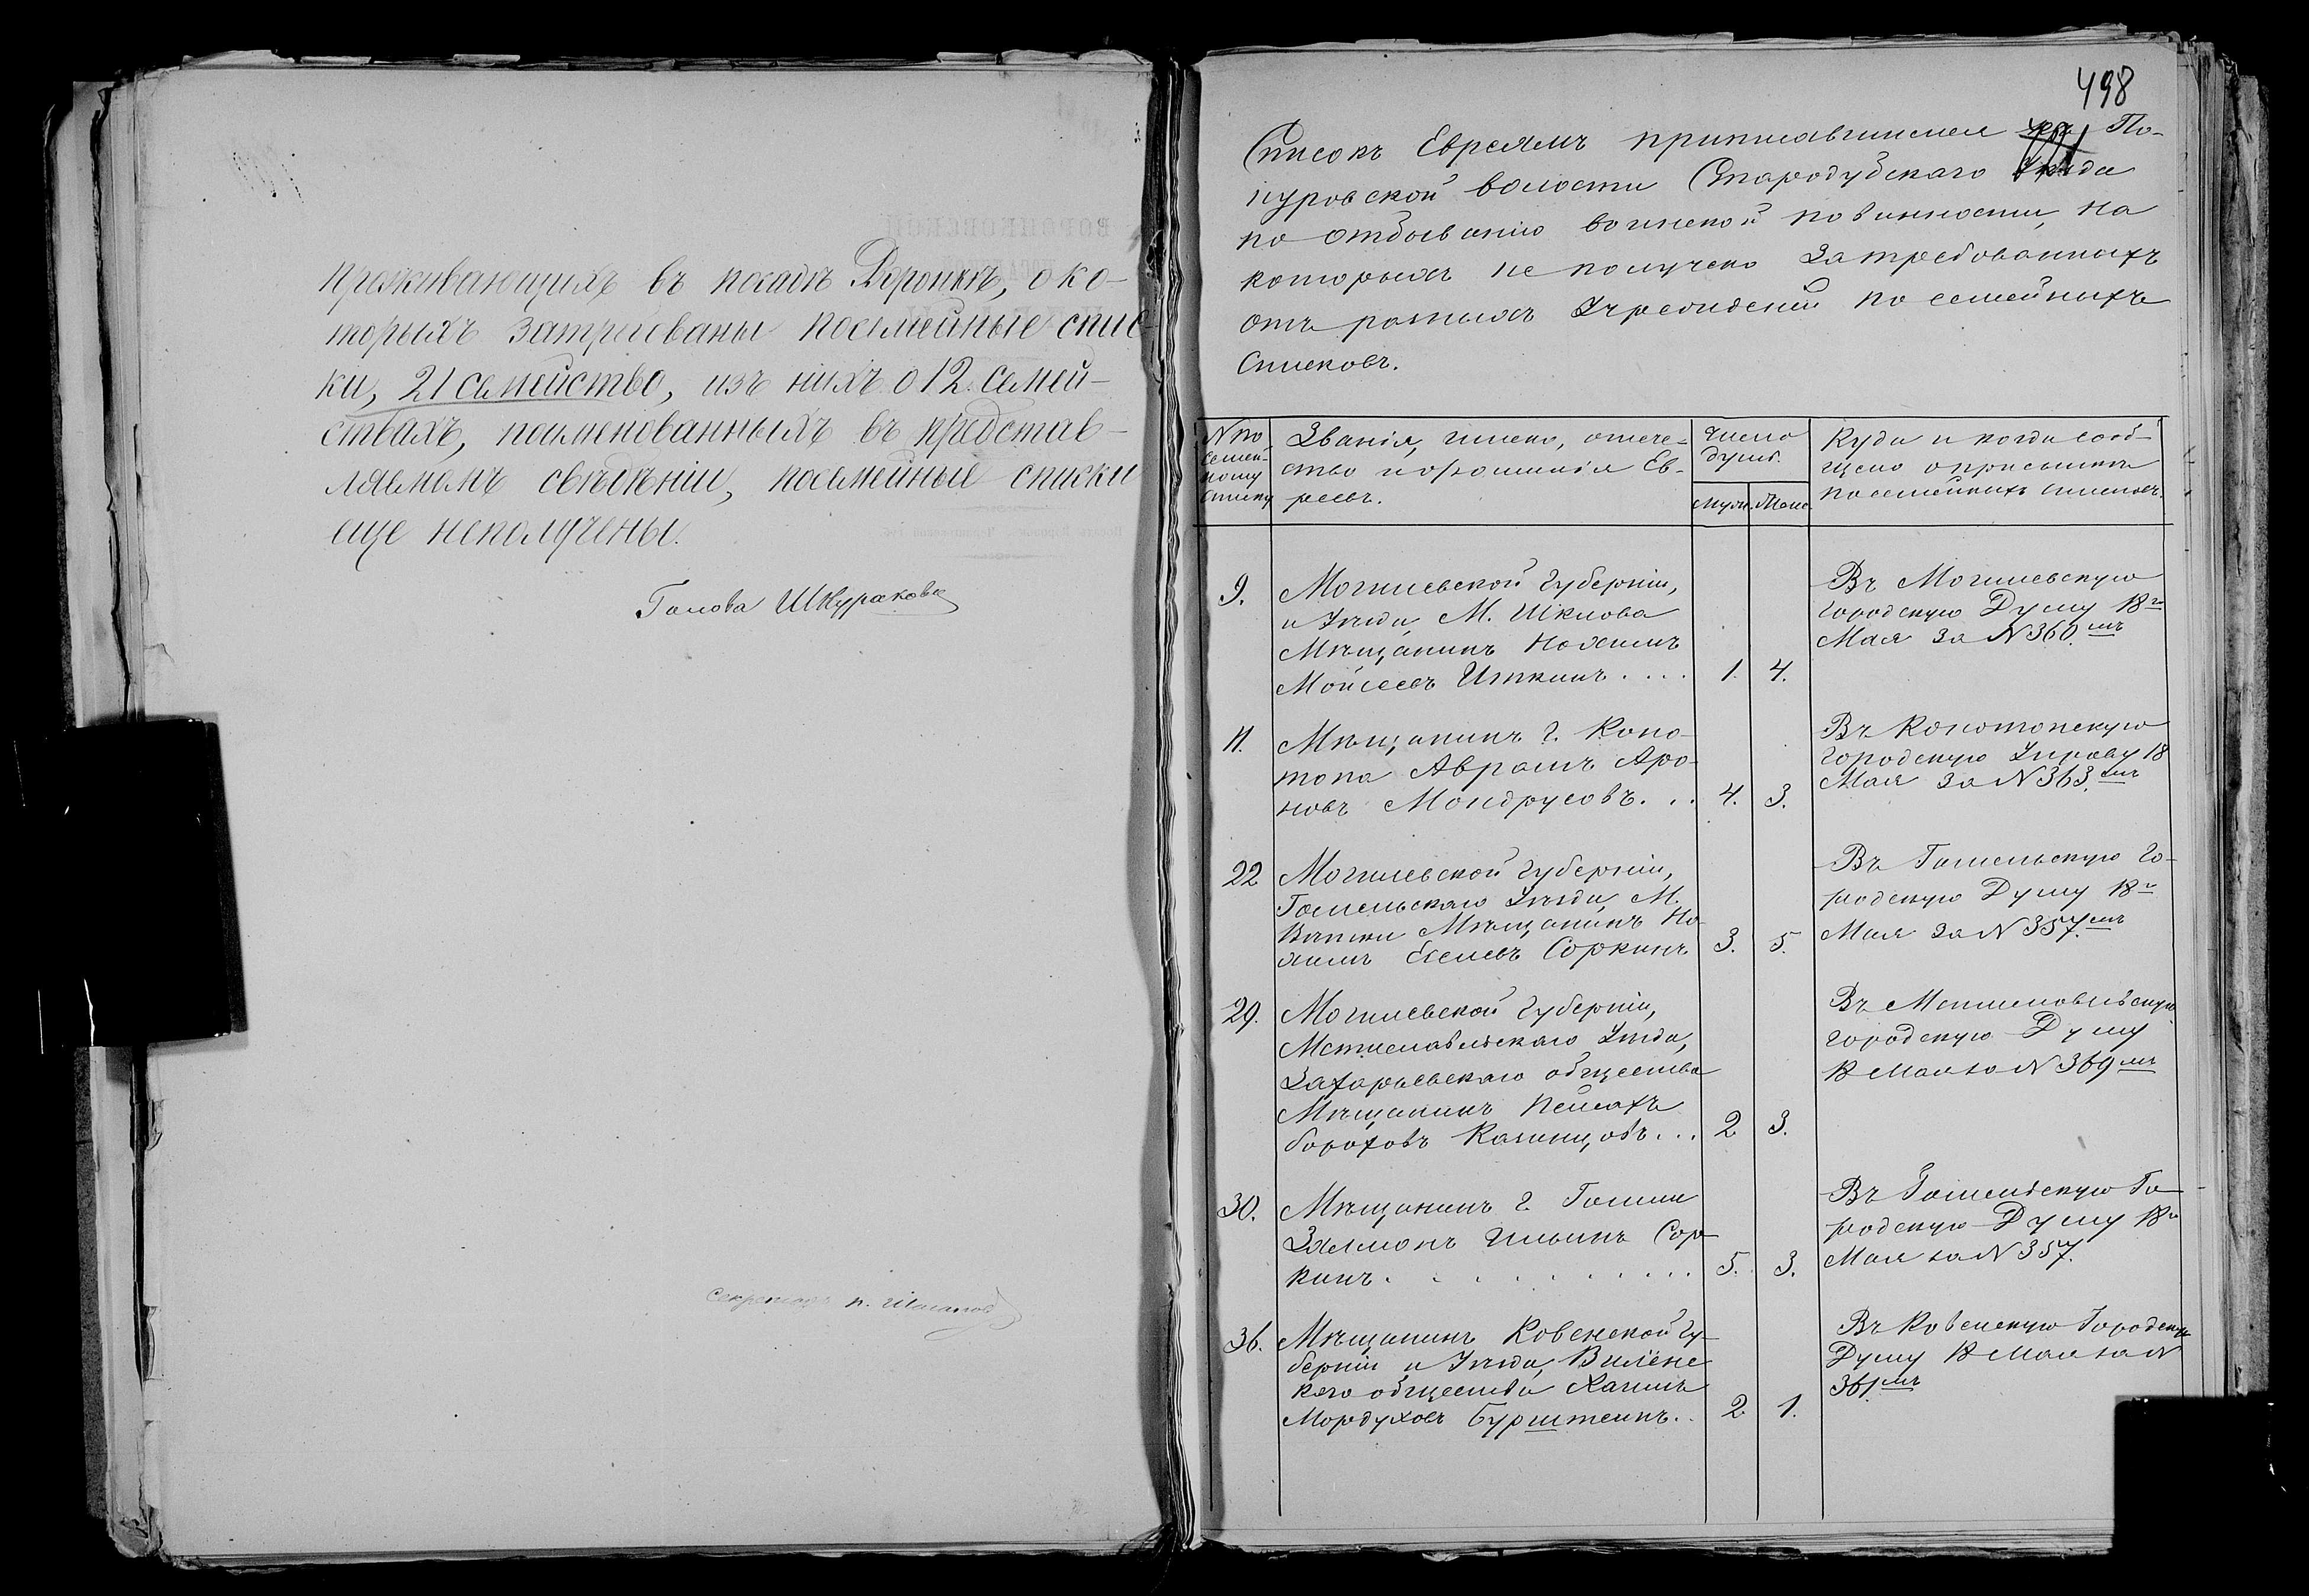 проживающихъ въ посадѣ Воронкѣ, о ко-
торыхъ затребованы посемейные спис-
ки, 21 семейство, изъ нихъ о 12 семей-
ствахъ, поименованныхъ въ представ-
ляемомъ свѣдѣніи, посемейные списки
еще неполучены.
Голова Шкураковъ
Секретарь
498
Списокъ Евреямъ приписавшимся По-
нуровской волости Стародубскаго Уѣзда
по отбыванію воинской повинности, на
которыхъ не получено затребованныхъ
отъ разныхъ Учрежденій посемейныхъ
Списковъ.
N по семей-ному списку
Званія, имена, отече-ство и фамилія Ев-реевъ.
Число душъ.
Муж. Жен.
Куда и когда сооб-щено о присылкѣ посемейныхъ списковъ.
9.
Могилевской Губерніи,
и Уѣзда, М. Шклова
Мѣщанинъ Нохимъ
Мойсеевъ Иткинъ . . . . 1. 4.
Въ Могилевскую
городскую Думу 18го
Мая за N 360.мъ
11.
Мѣщанинъ г. Коно-
топа Аврамъ Аро-
новъ Мондрусовъ. . . 4. 3.
Въ Конотопскую
городскую Управу 18
Мая за N 363.мъ
22
Могилевской Губерніи,
Гомельскаго Уѣзда, М.
Вѣтки Мѣщанинъ Но-
химъ Соркинъ 3. 5.
Въ Гомельскую го-
родскую Думу 18го
Мая за N 357.мъ
29.
Могилевской Губерніи,
Мстиславльскаго Уѣзда,
Захарьевскаго общества
Мѣщанинъ Пейсахъ
Бороховъ . . . 2 3.
Въ Мстиславльскую
городскую Думу
18 Мая за N 369мъ
30.
Мѣщанинъ г. Гомля
Залманъ Ильинъ Сор-
кинъ . . . . . . . . . . 5. 3.
Въ Гомельскую Го-
родскую Думу 18го
Мая за N 357.
36.
Мѣщанинъ Ковенской Гу-
берніи и Уѣзда, Виленс-
каго общества Хаимъ
Мордуховъ Бурштеинъ. . 2 1.
Въ Ковенскую Городскую
Думу 18 Мая за N
361мъ